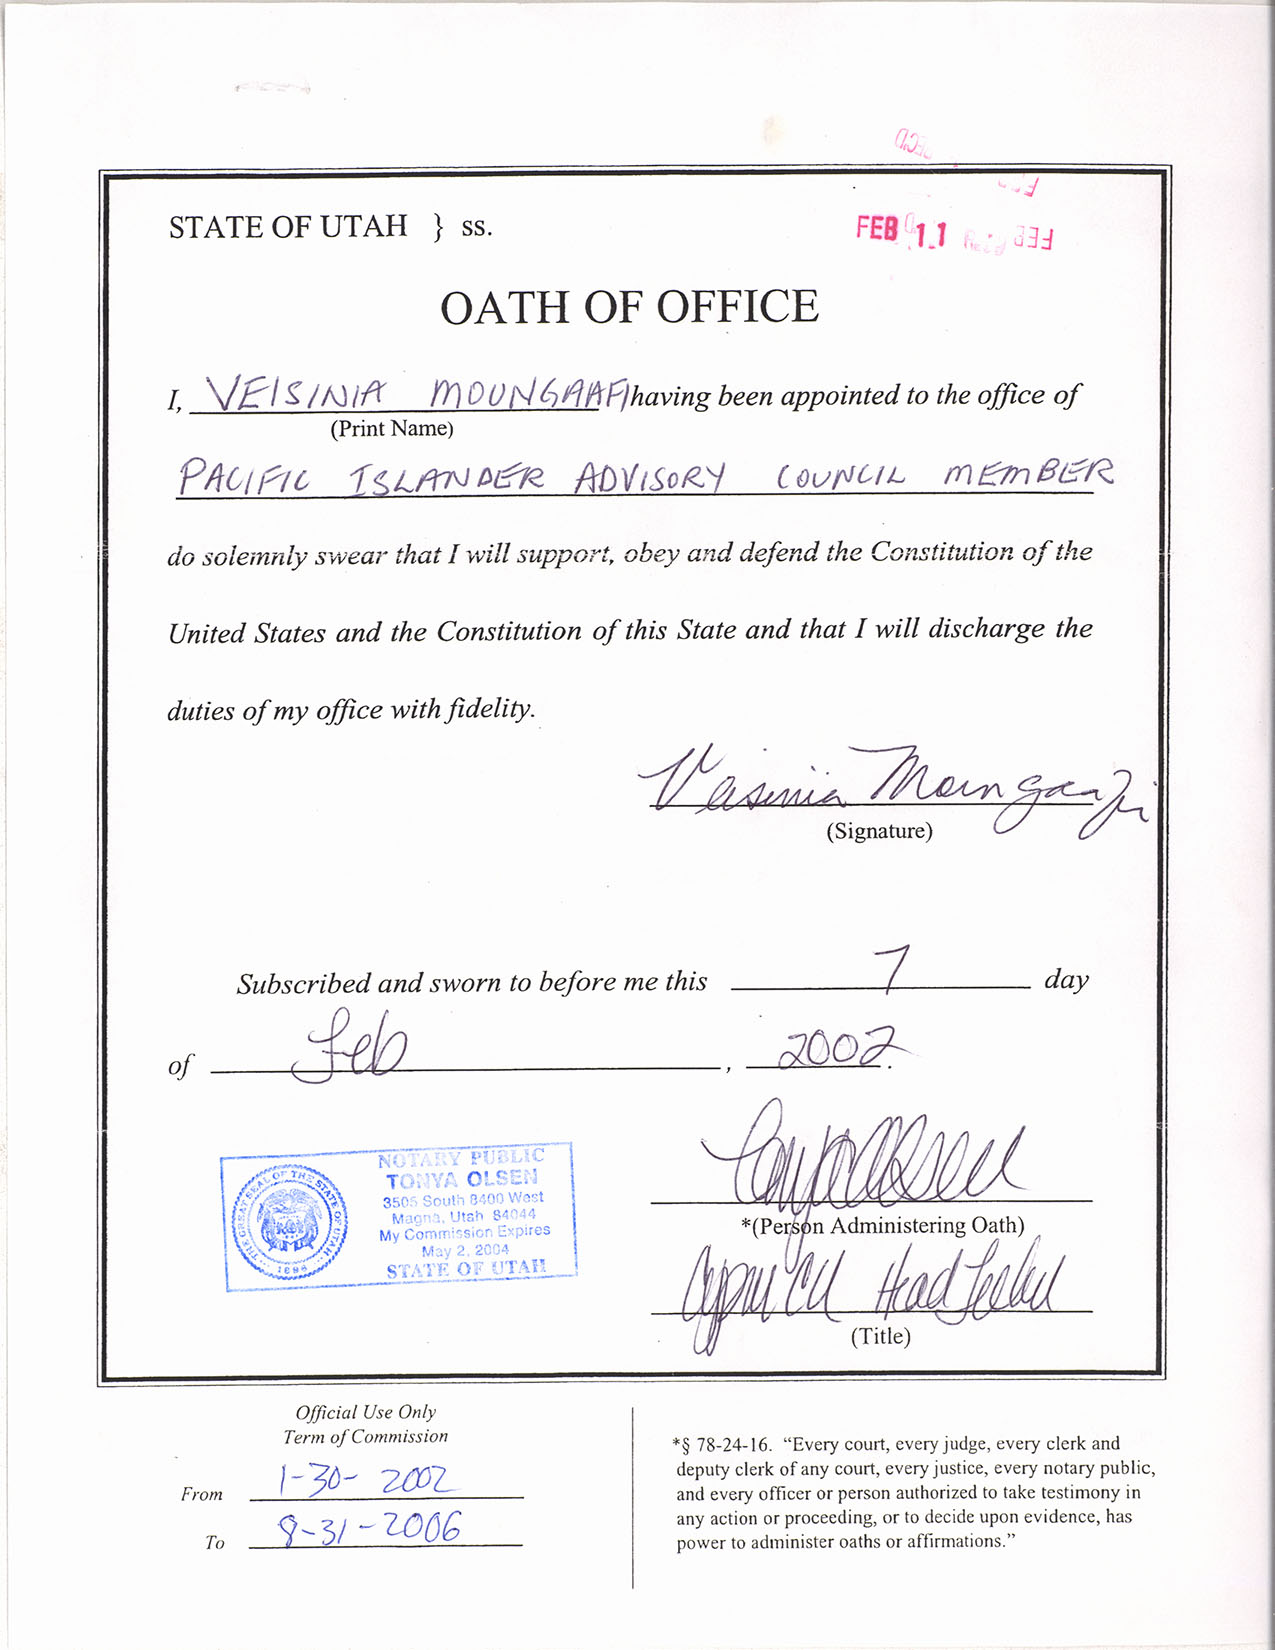 STATE OF UTAH } ss.
FEB 11
OATH OF OFFICE
I, VEISINIA MOUNGAAFI having been appointed to the office of
(Print Name)
PACIFIC ISLANDER ADVISORY COUNCIL MEMBER
do solemnly swear that I will support, obey and defend the Constitution of the
United States and the Constitution of this State and that I will discharge the
duties of my office with fidelity.
Veisinia Moungaafi
(Signature)
Subscribed and sworn to before me this 7 day
of Feb, 2002.
NOTARY PUBLIC
TONYA OLSEN
3505 South 8400 West
Magna, Utah 84044
My Commission Expires
May 2, 2004
STATE OF UTAH
THE GREAT SEAL OF THE STATE OF UTAH
1896
Tonya Olsen
*(Person Administering Oath)
Cyprus CU Head Teller
(Title)
Official Use Only
Term of Commission
From 1-30-2002
To 8-31-2006
*§ 78-24-16. “Every court, every judge, every clerk and
deputy clerk of any court, every justice, every notary public,
and every officer or person authorized to take testimony in
any action or proceeding, or to decide upon evidence, has
power to administer oaths or affirmations.”